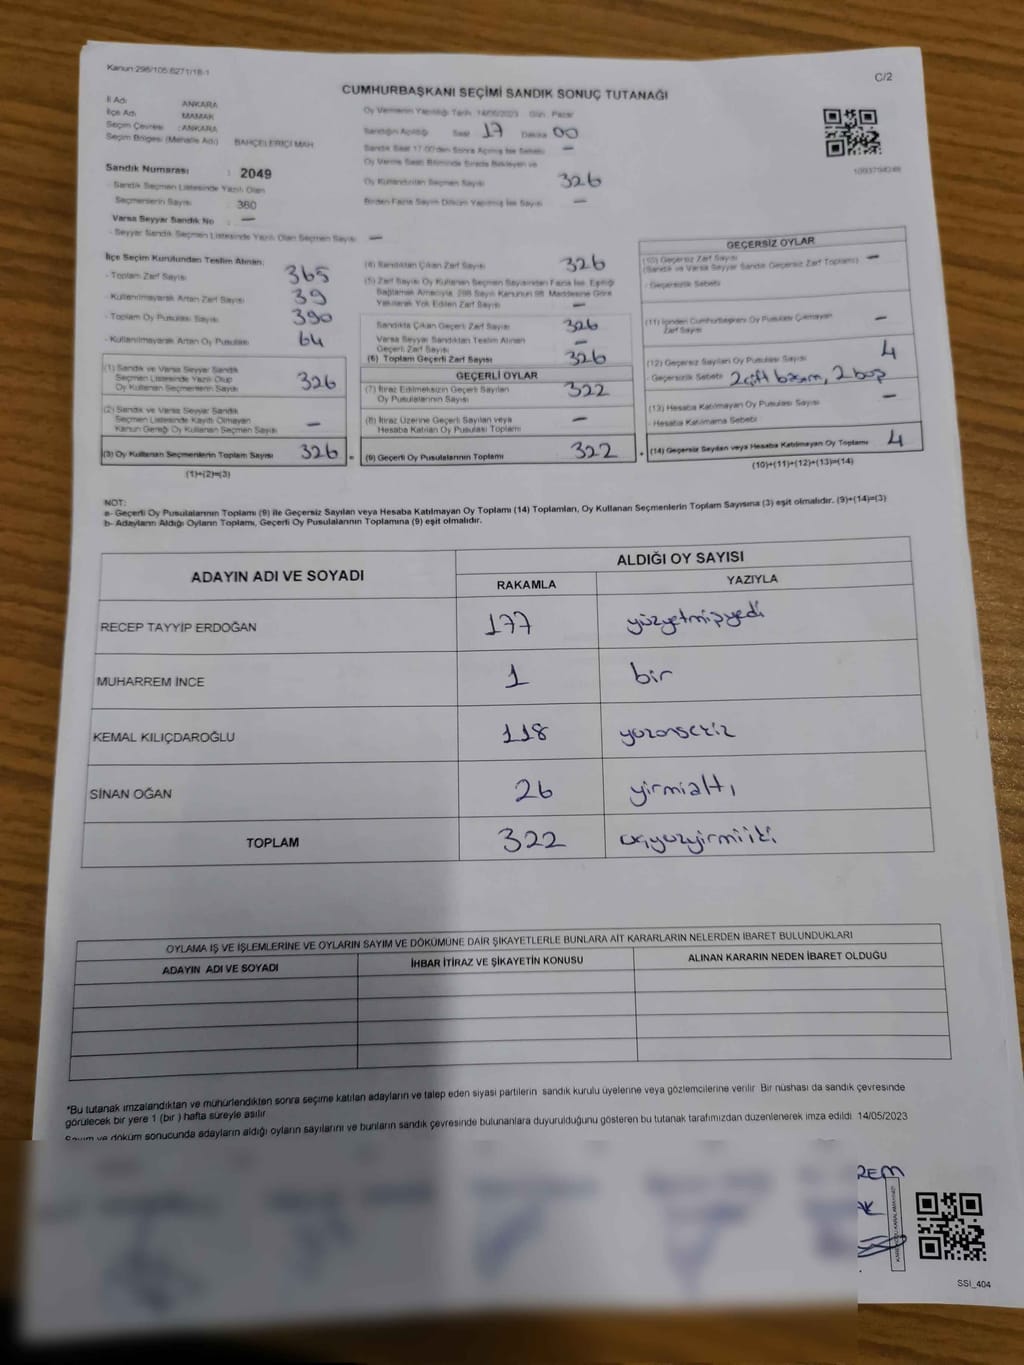 Kanun:298/105:6271/18-1
C/2
CUMHURBAŞKANI SEÇİMİ SANDIK SONUÇ TUTANAĞI
İl Adı ANKARA
İlçe Adı MAMAK
Seçim Çevresi : ANKARA
Seçim Bölgesi (Mahalle Adı) BAHÇELERİÇİ MAH
Sandık Numarası : 2049
- Sandık Seçmen Listesinde Yazılı Olan
Seçmenlerin Sayısı : 360
Varsa Seyyar Sandık No : —
- Seyyar Sandık Seçmen Listesinde Yazılı Olan Seçmen Sayısı —
Oy Vermenin Yapıldığı Tarih 14/05/2023 Gün Pazar
Sandığın Açıldığı Saat 17 Dakika 00
Sandık Saat 17.00'den Sonra Açılmış İse Sebebi —
Oy Verme Saati Bitiminde Sırada Bekleyen ve
Oy Kullandırılan Seçmen Sayısı 326
Birden Fazla Sayım Döküm Yapılmış İse Sayısı —
1093794249
İlçe Seçim Kurulundan Teslim Alınan:
- Toplam Zarf Sayısı 365
- Kullanılmayarak Artan Zarf Sayısı 39
- Toplam Oy Pusulası Sayısı 390
- Kullanılmayarak Artan Oy Pusulası 64
(1) Sandık ve Varsa Seyyar Sandık
Seçmen Listesinde Yazılı Olup
Oy Kullanan Seçmenlerin Sayısı 326
(2) Sandık ve Varsa Seyyar Sandık
Seçmen Listesinde Kayıtlı Olmayan
Kanun Gereği Oy Kullanan Seçmen Sayısı —
(3) Oy Kullanan Seçmenlerin Toplam Sayısı 326
(1)+(2)=(3)
(4) Sandıktan Çıkan Zarf Sayısı 326
(5) Zarf Sayısı Oy Kullanan Seçmen Sayısından Fazla İse, Eşitliği
Sağlamak Amacıyla, 298 Sayılı Kanunun 98. Maddesine Göre
Yakılarak Yok Edilen Zarf Sayısı —
Sandıkta Çıkan Geçerli Zarf Sayısı 326
Varsa Seyyar Sandıktan Teslim Alınan
Geçerli Zarf Sayısı —
(6) Toplam Geçerli Zarf Sayısı 326
GEÇERLİ OYLAR
(7) İtiraz Edilmeksizin Geçerli Sayılan
Oy Pusulalarının Sayısı 322
(8) İtiraz Üzerine Geçerli Sayılan veya
Hesaba Katılan Oy Pusulası Toplamı —
= (9) Geçerli Oy Pusulalarının Toplamı 322
GEÇERSİZ OYLAR
(10) Geçersiz Zarf Sayısı —
(Sandık ve Varsa Seyyar Sandık Geçersiz Zarf Toplamı)
- Geçersizlik Sebebi
(11) İçinden Cumhurbaşkanı Oy Pusulası Çıkmayan
Zarf Sayısı —
(12) Geçersiz Sayılan Oy Pusulası Sayısı 4
- Geçersizlik Sebebi 2 çift basım, 2 boş
(13) Hesaba Katılmayan Oy Pusulası Sayısı —
- Hesaba Katılmama Sebebi
+ (14) Geçersiz Sayılan veya Hesaba Katılmayan Oy Toplamı 4
(10)+(11)+(12)+(13)=(14)
NOT:
a- Geçerli Oy Pusulalarının Toplamı (9) ile Geçersiz Sayılan veya Hesaba Katılmayan Oy Toplamı (14) Toplamları, Oy Kullanan Seçmenlerin Toplam Sayısına (3) eşit olmalıdır. (9)+(14)=(3)
b- Adayların Aldığı Oyların Toplamı, Geçerli Oy Pusulalarının Toplamına (9) eşit olmalıdır.
ADAYIN ADI VE SOYADI
ALDIĞI OY SAYISI
RAKAMLA YAZIYLA
RECEP TAYYİP ERDOĞAN 177 yüzyetmişyedi
MUHARREM İNCE 1 bir
KEMAL KILIÇDAROĞLU 118 yüzonsekiz
SİNAN OĞAN 26 yirmialtı
TOPLAM 322 üçyüzyirmiiki
OYLAMA İŞ VE İŞLEMLERİNE VE OYLARIN SAYIM VE DÖKÜMÜNE DAİR ŞİKAYETLERLE BUNLARA AİT KARARLARIN NELERDEN İBARET BULUNDUKLARI
ADAYIN ADI VE SOYADI İHBAR İTİRAZ VE ŞİKAYETİN KONUSU ALINAN KARARIN NEDEN İBARET OLDUĞU
*Bu tutanak imzalandıktan ve mühürlendikten sonra seçime katılan adayların ve talep eden siyasi partilerin sandık kurulu üyelerine veya gözlemcilerine verilir Bir nüshası da sandık çevresinde
görülecek bir yere 1 (bir ) hafta süreyle asılır
Sayım ve döküm sonucunda adayların aldığı oyların sayılarını ve bunların sandık çevresinde bulunanlara duyurulduğunu gösteren bu tutanak tarafımızdan düzenlenerek imza edildi 14/05/2023
SSI_404